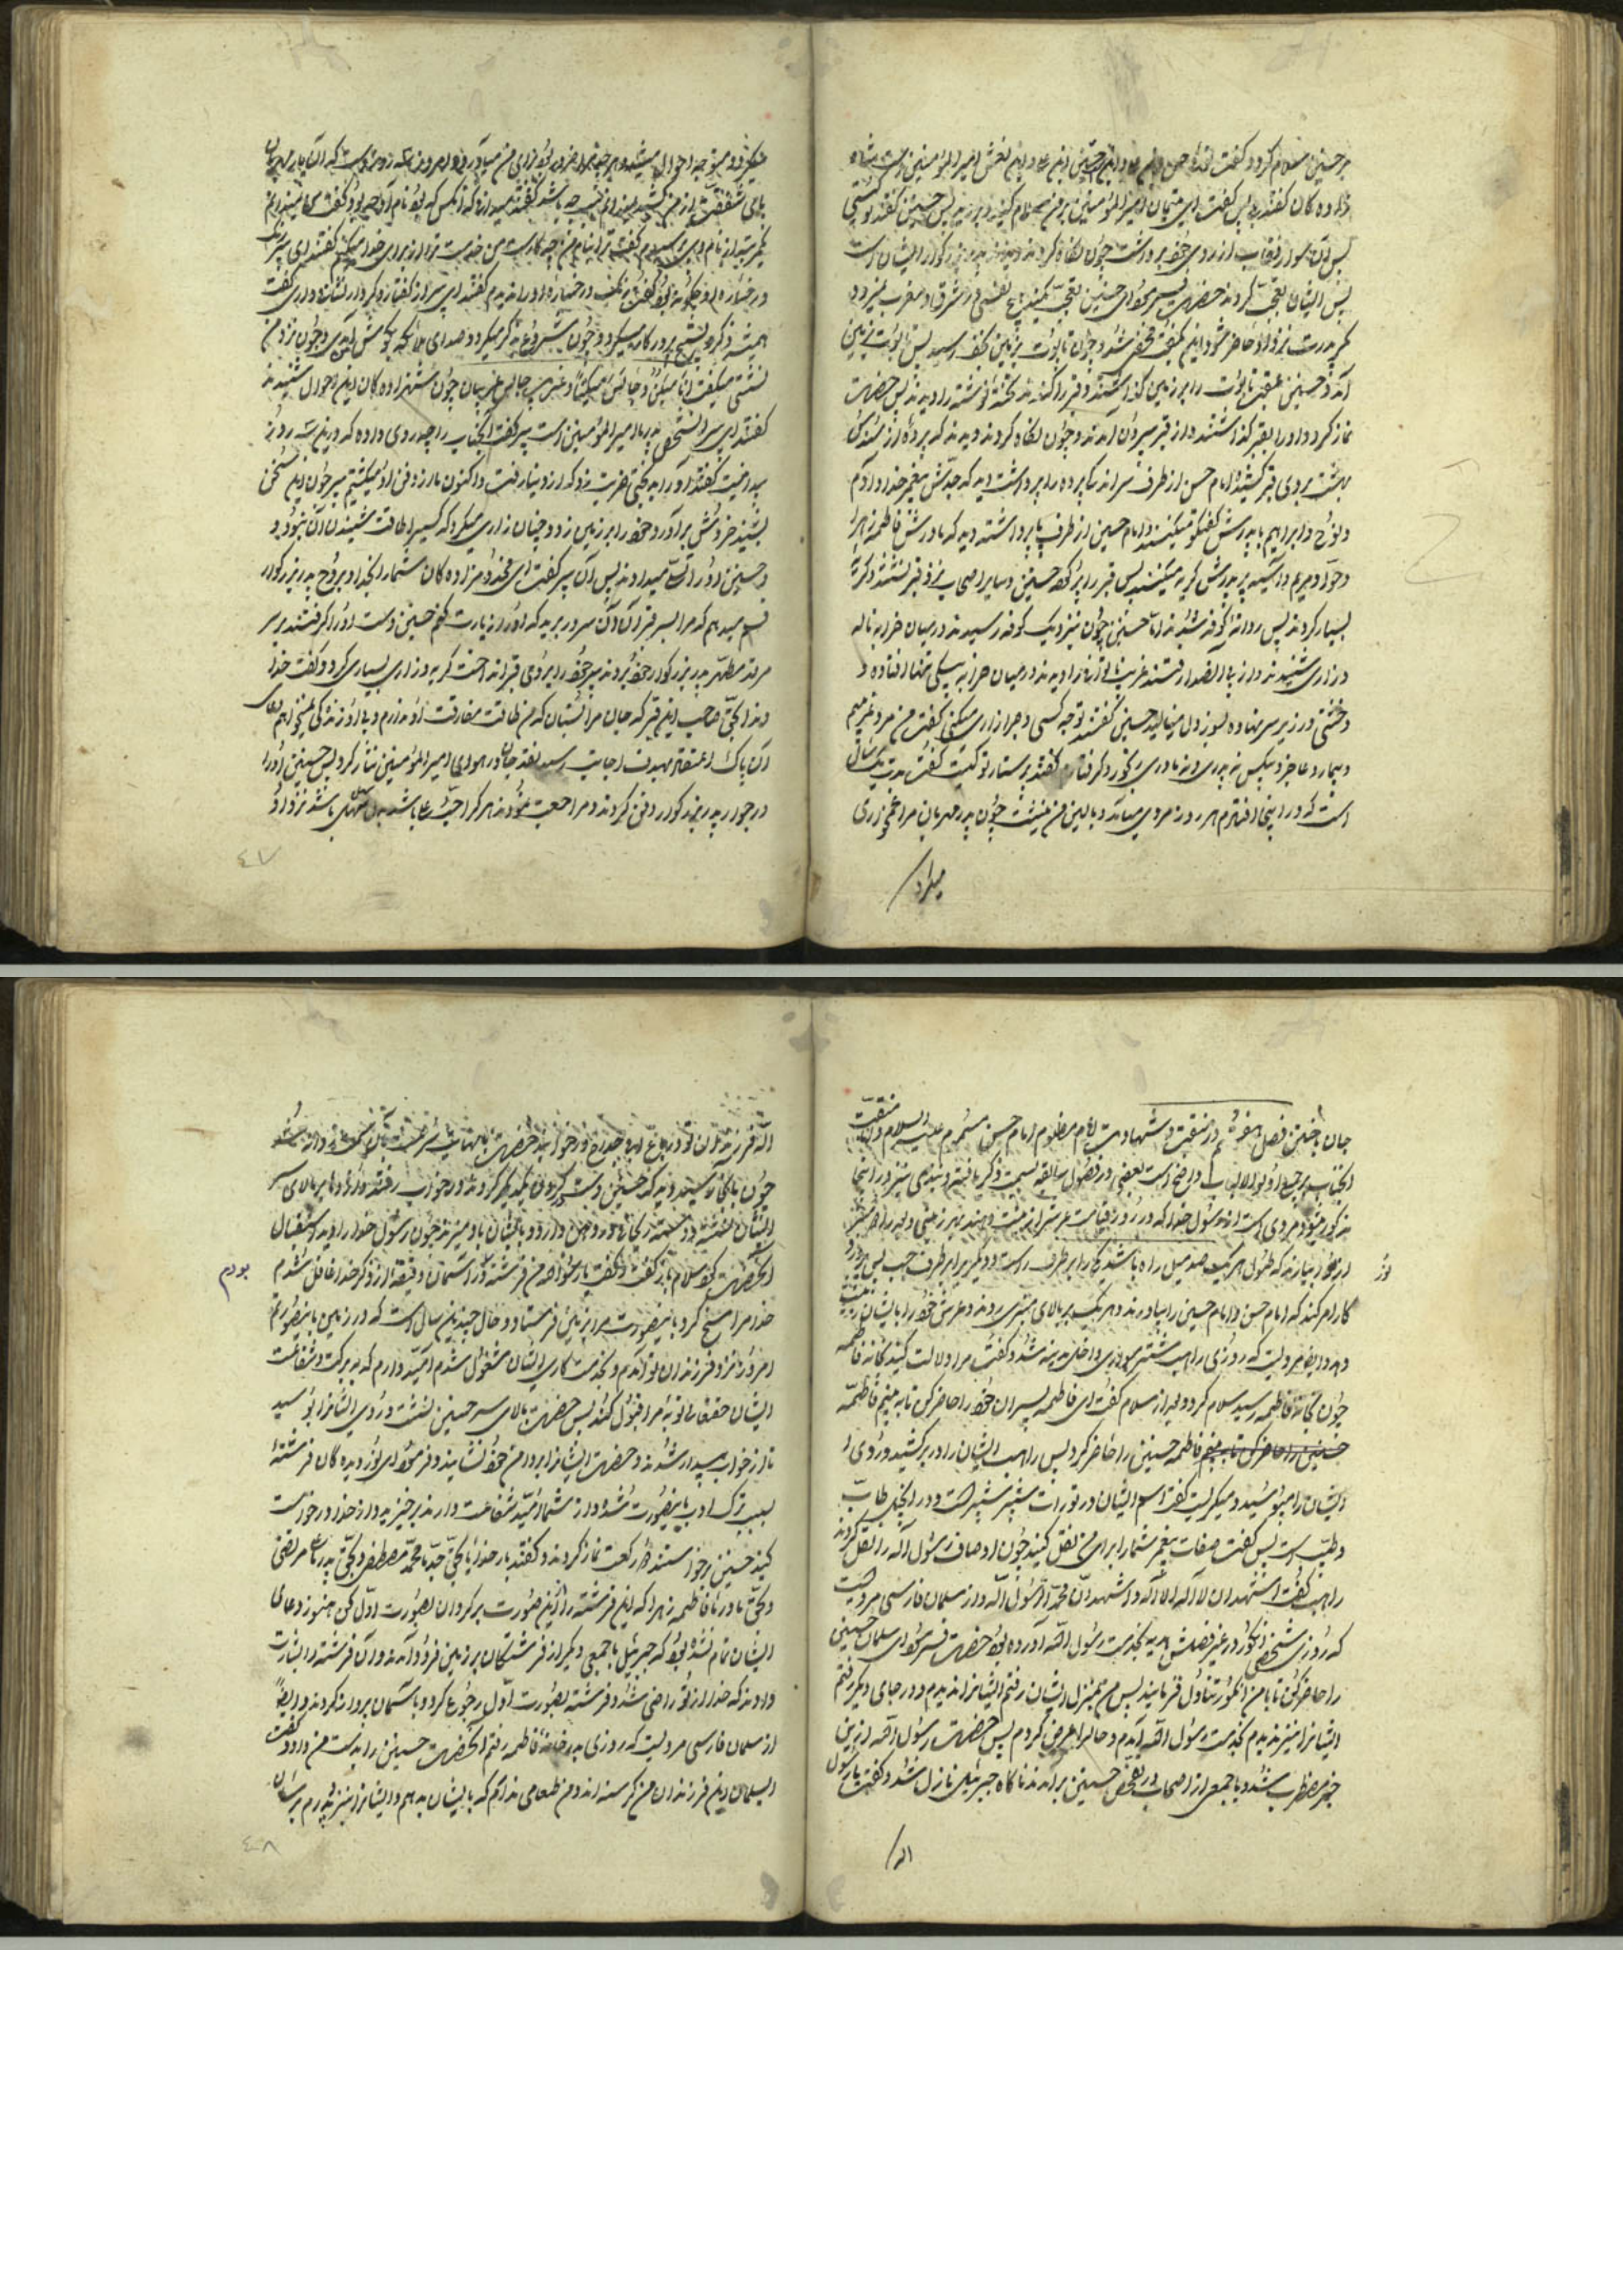 بر حسنین سلام کرد و گفت
زاده کان گفتند بلی پس گفت این متمان امیر المؤمنین بر من سلام کنید پس حسنین گفتند تو کیستی
پس آن سوار نقاب از روی خود برداشت چون نگاه کردند دیدند پدر بزرگوار ایشان است
پس ایشان تعجب کردند حضرت فرمود ای حسنین تعجب مکنید هیچ نفسی در مشرق و مغرب نمیرد
مگر پدرت نزد او حاضر شود این بگفت و مخفی شد و چون تابوت بزمین نجف رسید پس تابوت بزمین
آمد حسنین عقب تابوت را بر زمین گذاشتند و قبر را کندند تخته نوشته را دیدند پس حضرت
نماز کرد و او را بقبر گذاشتند و از قبر بیرون آمدند و چون نگاه کردند دیدند که پرده از سندس
بهشت بروی قبر کشیده امام حسن از طرف سر اندکی پرده را برداشت دید که جدش پیغمبر خدا و آدم
و نوح و ابراهیم با پدرش گفتگو میکنند و امام حسین از طرف پا برداشته دید که مادرش فاطمه زهرا
و حوا و مریم و آسیه بر پدرش گریه میکنند پس قبر را پر کرد حسنین و سایر اصحاب نزد قبر نشستند و گریه
بسیار کردند پس روانه کوفه شدند اما حسنین چون نزدیک کوفه رسیدند در میان خرابه ناله
و زاری شنیدند و از پی آن صدا رفتند غریب ناتوانی را دیدند در میان خرابه بیکس تنها افتاده و
خشتی در زیر سر نهاده بسوز دل مینالید حسنین گفتند تو چه کسی و چرا زاری میکنی گفت من مرد غریبم
و بیمار و عاجز و بیکس نه پدری و نه مادری گفتند پرستار تو کیست گفت مدت یک سال
است که در اینجا افتاده ام هر روز مردی میآمد و بالین من مینشست چون پدر مهربان مرا غمخواری
میکرد
بای شفقت از من گفتند میدانی که آنکس که بود نام او چه بود گفت
یکمرتبه از نام وی پرسیدم گفت ترا بنام من چه کارست من خدمت ترا از برای خدا میکنم گفتند ای پیر رنگ
و رخساره او چگونه بود گفت من نابینا رخساره او را ندیدم گفتند ای پیر از گفتار و کردار نشانه داری گفت
همیشه ذکر و تسبیح پروردگار میکرد و چون شروع بذکر میکرد صدای ملائکه بگوش آمدی و چون نزد من
نشستی میگفت انا مسکین جالس مسکینا و غریب جالس غریبا چون شهزاده کان این احوال شنیدند
گفتند ای پیر این شخص پدر ما امیر المؤمنین است پیر گفت آنجناب را چه روی داده که درین سه روز
پیدا نیست گفتند او را بدبختی ضربت زد که از دنیا رفت و اکنون ما از دفن او میآئیم پیر چون این سخن
بشنید خروش برآورد و خود را بر زمین زد و چنان زاری میکرد که کسی را طاقت شنیدن آن نبود
و حسنین او را تسلی میدادند پس آن پیر گفت ای مخدوم زاده کان شما را بخدا و بروح پدر بزرگوار
قسم میدهم که مرا بسر قبر آن سرور برید که او را زیارت کنم حسنین دست او را گرفتند بر سر
مرقد مطهر پدر بزرگوار خود بردند پیر خود را بروی قبر انداخت گریه و زاری بسیاری کرد و گفت خدا
وندا بحق صاحب این قبر که جان مرا بستان که من طاقت مفارقت او ندارم و بی او زندگی نمیخواهم دعای
آن پاک اعتقاد بهدف اجابت رسید نقد جان در هوای امیر المؤمنین نثار کرد پس حسنین او را
در جوار پدر بزرگوار دفن کردند و مراجعت نمودند هر کرا حب علی باشد
٤٧
جان باختن فصل هفدهم در منقبت و شهادت امام مظلوم امام حسن مسموم علیه السلام و منقبت
آنجناب بر جمیع اولوالالباب واضح است بعضی در فصول سابقه سمت ذکر یافته و نبذی نیز در اینجا
مذکور میشود مروی است از رسول خدا که در روز قیامت عرش را زینت دهند بهر زینتی و بعد از آن دو منبر
از نور بیارند که طول هر یک صد میل راه باشد یکی را بر طرف راست و دیگری را بر طرف چپ پس
امر کند که امام حسن و امام حسین را بیاورند و هر یک بر بالای منبری روند و عرش خود را بایشان زینت
دهد و ایضا مرویست که روزی راهب شتر سواری داخل مدینه شد و گفت مرا دلالت کنید بخانه فاطمه
چون بخانه فاطمه رسید سلام کرد و بعد از سلام گفت ای فاطمه پسران خود را حاضر کن تا به بینم فاطمه
حسنین را حاضر کن تا به بینم فاطمه حسنین را حاضر کرد پس راهب ایشان را در بر کشید و روی
ایشان را میبوسید و میگریست گفت اسم ایشان در تورات شبیر و شبر است و در انجیل طاب
و طیب است پس گفت صفات پیغمبر شما را برای من نقل کنید چون اوصاف رسول الله را نقل کردند
راهب گفت اشهد ان لا اله الا الله و اشهد ان محمدا رسول الله و از سلمان فارسی مرویست
که روزی شخصی انگور در غیر فصلش هدیه بخدمت رسول الله آورده بود حضرت فرمود ای سلمان حسنین
را حاضر کن تا با من انگور تناول فرمایند پس من بمنزل ایشان رفتم ایشان را ندیدم و در جای دیگر رفتم
ایشان را نیز ندیدم بخدمت رسول الله آمدم و حال را عرض کردم پس حضرت رسول الله ازین
خبر مضطرب شد و با جمعی از اصحاب در تفحص حسنین برآمدند ناگاه جبرئیل نازل شد و گفت یا رسول
الله
الله فرزندان تو در باغ
چون بآنجا رسید دید که حسنین دست بگردن یکدیگر کرده در خواب رفته و اژدهائی بر بالای سر
ایشان نشسته و دسته ریحانی در دهن دارد و ایشان را باد میزند چون رسول خدا را دید استقبال
آنحضرت کرد سلام کرد و گفت یا رسول الله من فرشته در آسمان دقیقه از ذکر خدا غافل شدم
بودم
خدا مرا مسخ کرد باینصورت مرا بزمین فرستاد و حال چندین سال است که در زمین باینصورتم
امروز نزد فرزندان تو آمدم و بخدمت کاری ایشان مشغول شدم امید دارم که ببرکت و شفاعت
ایشان حقتعالی توبه مرا قبول کند پس حضرت ببالای سر حسنین نشست و روی ایشان را بوسید
تا از خواب بیدار شدند و حضرت ایشان را بر دامن خود نشانید و فرمود ای نور دیده گان فرشته
بسبب ترک ادب باینصورت شده و از شما امید شفاعت دارد برخیزید و از خدا درخواست
کنید حسنین برخواستند دو رکعت نماز کردند و گفتند بار خدایا بحق جد ما محمد مصطفی و بحق پدر ما علی مرتضی
و بحق مادر ما فاطمه زهرا که این فرشته را ازین صورت برگردان بصورت اول کن هنوز دعای
ایشان تمام نشده بود که جبرئیل با جمعی دیگر از فرشتگان بزمین فرود آمدند و آن فرشته را بشارت
دادند که خدا از تو راضی شد و فرشته بصورت اول رجوع کرد و بآسمان پرواز کردند و ایضا
از سلمان فارسی مرویست که روزی بدر خانه فاطمه رفتم آنحضرت حسنین را بدست من داد و گفت
ای سلمان این فرزندان من گرسنه اند و من طعامی ندارم که بایشان بدهم و ایشان را نیز پدرم برسان
٤٨